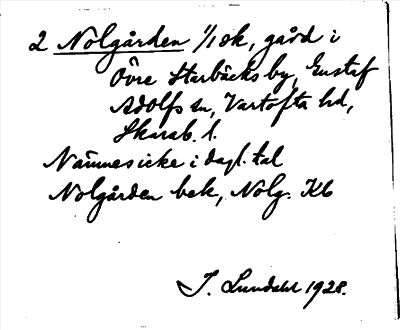 2 Nolgården 1/1 sk, gård i
Övre Starbäcks by, Gustaf
Adolfs sn, Vartofta hd,
Skarab. l.
Nämnes icke i dagl. tal
Nolgården bek, Nolg. Kb
I. Lundahl 1928.